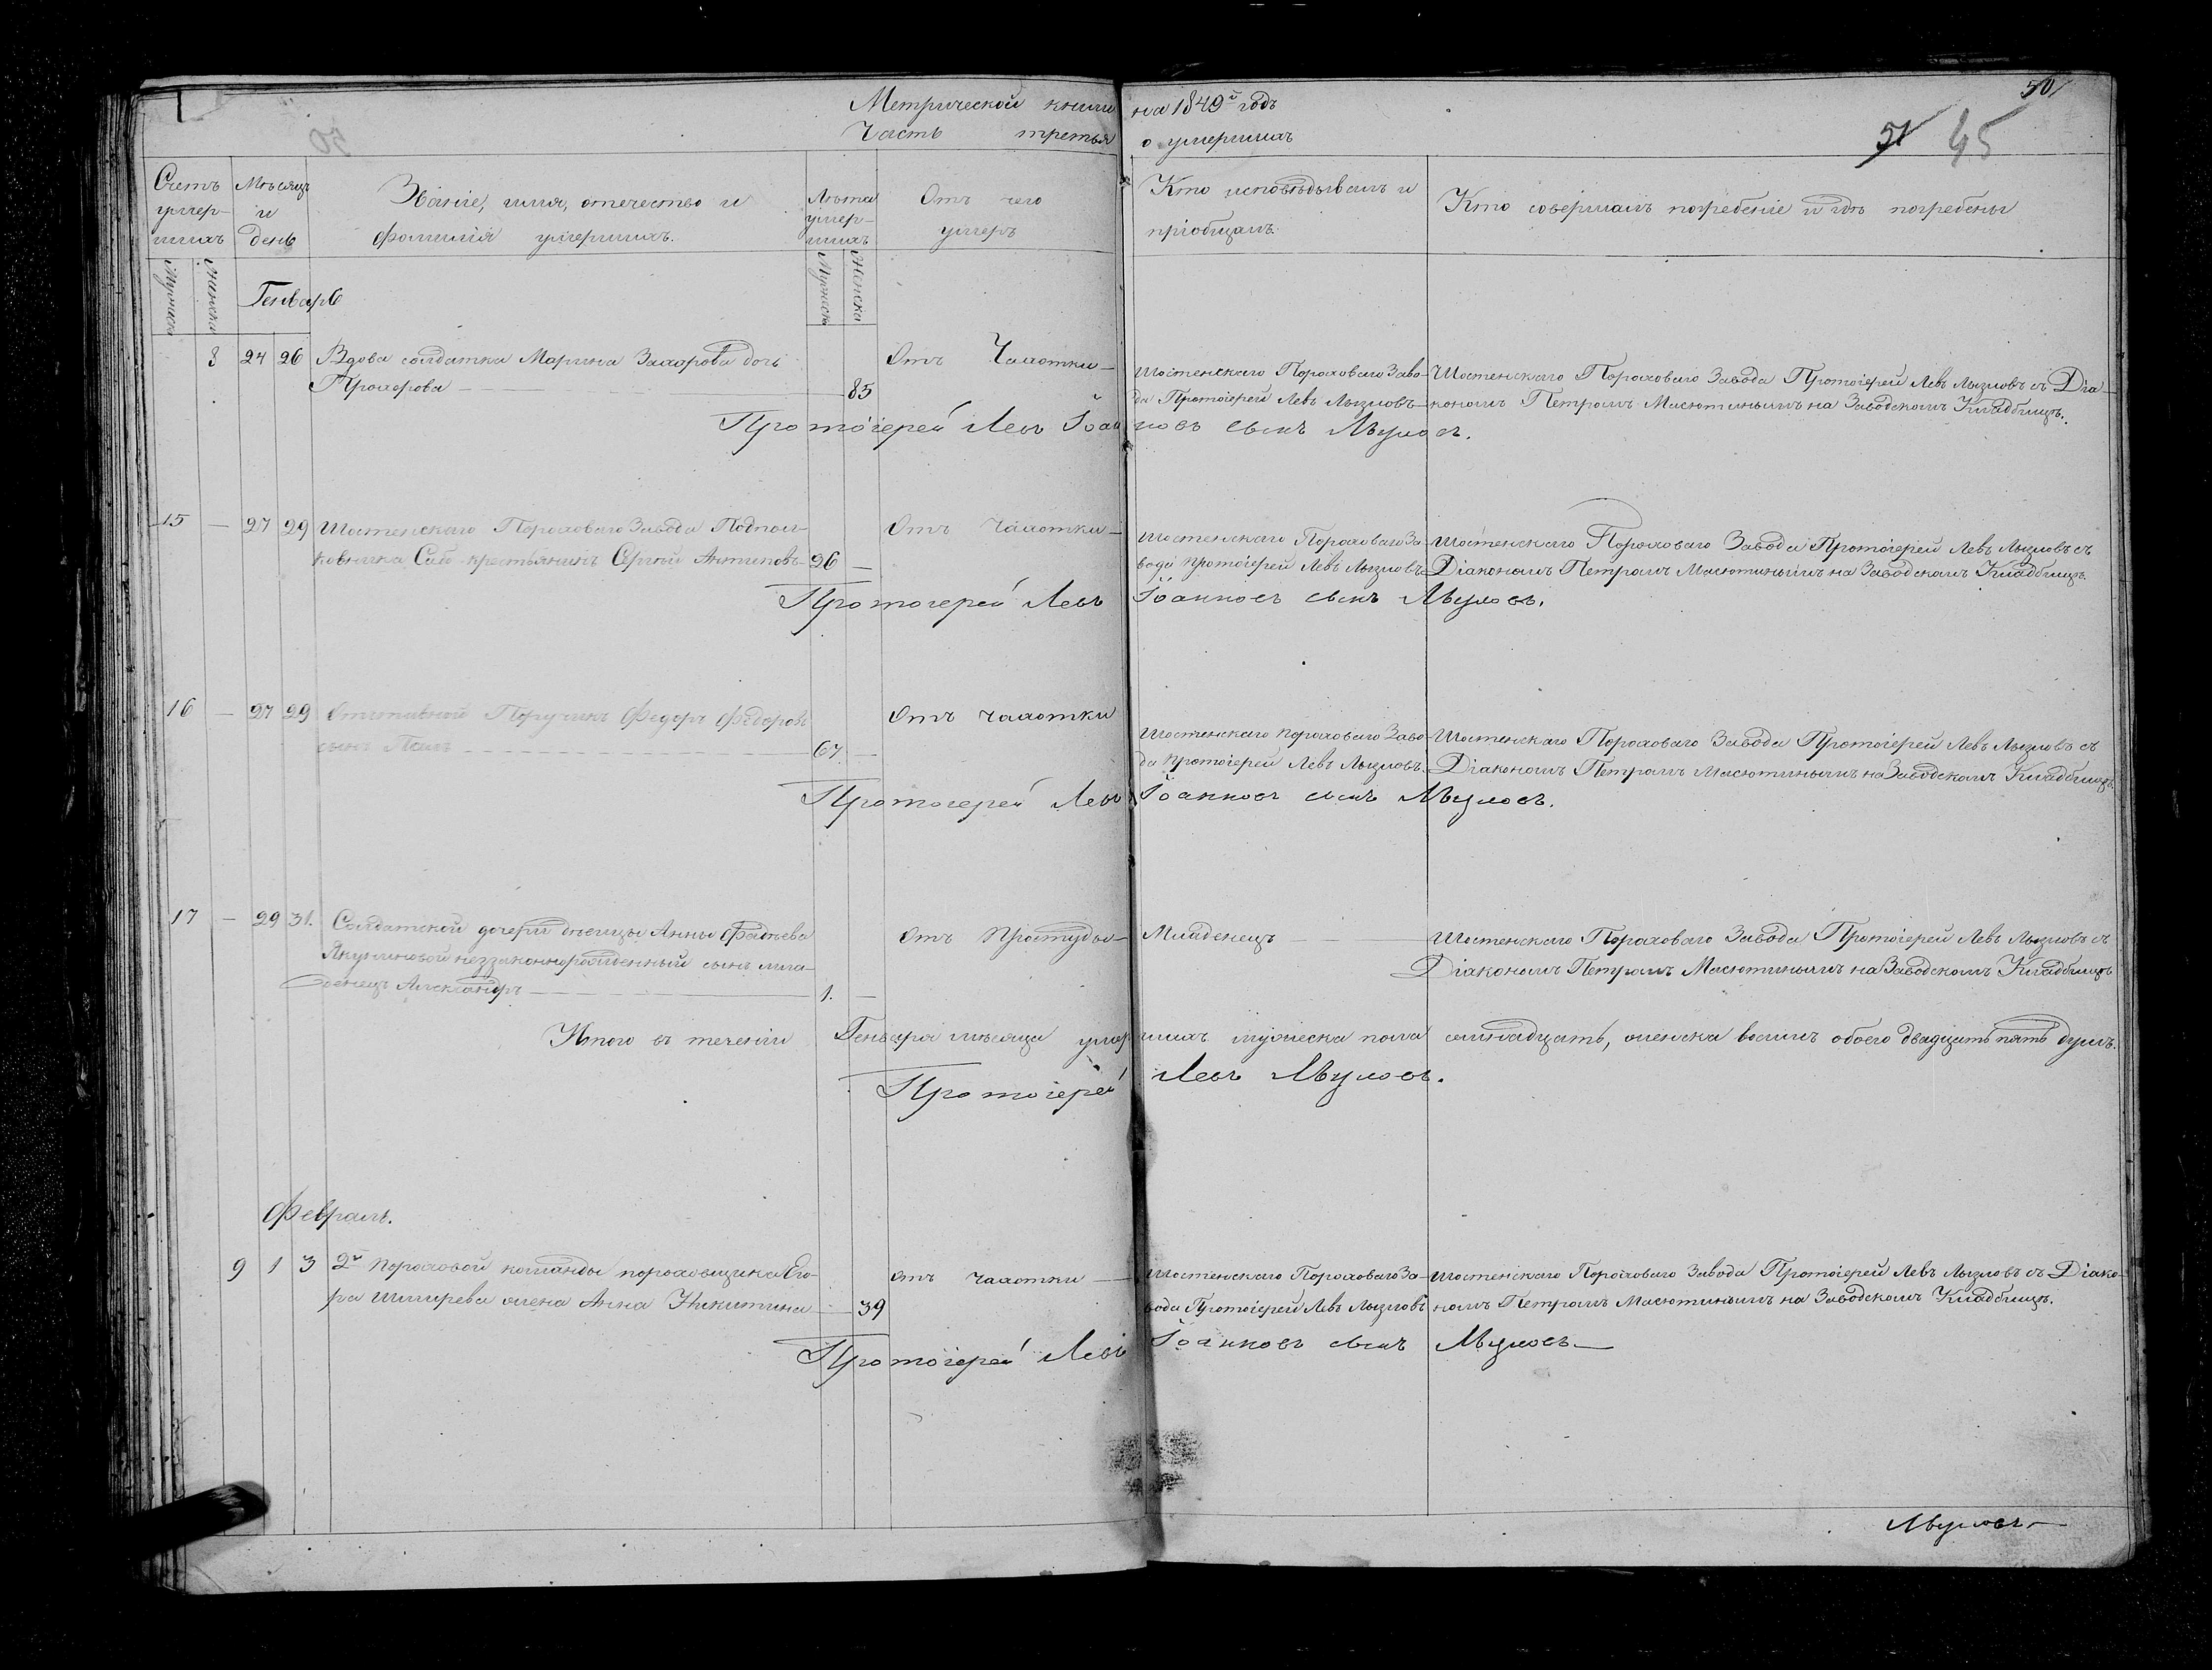 50
51 45
Метрической книги на 1849й годъ
Часть третья о умершихъ
Счетъ умер-шихъ
Мѣсяцъ и день
Званіе, имя, отечество и фамилія умершихъ.
Лѣта умер-шихъ
Отъ чего умеръ
Кто исповѣдывалъ и пріобщалъ.
Кто совершалъ погребеніе и гдѣ погребены
Мужеска Женска
Генварь
Мужеска Женска
8 24 26 Вдова солдатка Марина Захарова дочь
Прохорова 85
Отъ Чахотки
Шостенскаго Пороховаго Заво-
да Протоіерей Левъ
Шостенскаго Пороховаго Завода Протоіерей Левъ съ Діа-
кономъ Петромъ Масютинымъ на Заводскомъ Кладбищѣ.
Протоіерей Левъ Іоанновъ сынъ
15 — 27 29 Шостенскаго Пороховаго Завода Подпол-
ковника крестьянинъ Сергей Антиповъ 26 —
Отъ Чахотки
Шостенскаго Пороховаго За-
вода Протоіерей Левъ
Шостенскаго Пороховаго Завода Протоіерей Левъ съ
Діакономъ Петромъ Масютинымъ на Заводскомъ Кладбищѣ.
Протоіерей Левъ Іоанновъ сынъ
16 — 27 29 Отставной Поручикъ Федоръ Федоровъ
сынъ 67. —
Отъ чахотки
Шостенскаго пороховаго Заво-
да протоіерей Левъ
Шостенскаго Пороховаго Завода Протоіерей Левъ съ
Діакономъ Петромъ Масютинымъ на Заводскомъ Кладбищѣ.
Протоіерей Левъ Іоанновъ сынъ
17 — 29 31. Солдатской дочери дѣвицы Анны Фадѣева
незаконнорожденный сынъ мла-
денецъ Александръ 1. —
Отъ Простуды
Младенецъ
Шостенскаго Пороховаго Завода Протоіерей Левъ съ
Діакономъ Петромъ Масютинымъ на Заводскомъ Кладбищѣ
Итого въ теченіи Генваря мѣсяца умершихъ мужеска пола семнадцать, женска восимъ обоего двадцать пять душъ.
Протоіерей Левъ
Февраль.
9 1 3 2й пороховой команды пороховщика Его-
ра жена Анна Никитина 39
Отъ чахотки
Шостенскаго Пороховаго За-
вода Протоіерей Левъ
Шостенскаго Пороховаго Завода Протоіерей Левъ съ Діако-
номъ Петромъ Масютинымъ на Заводскомъ Кладбищѣ.
Протоіерей Левъ Іоанновъ сынъ